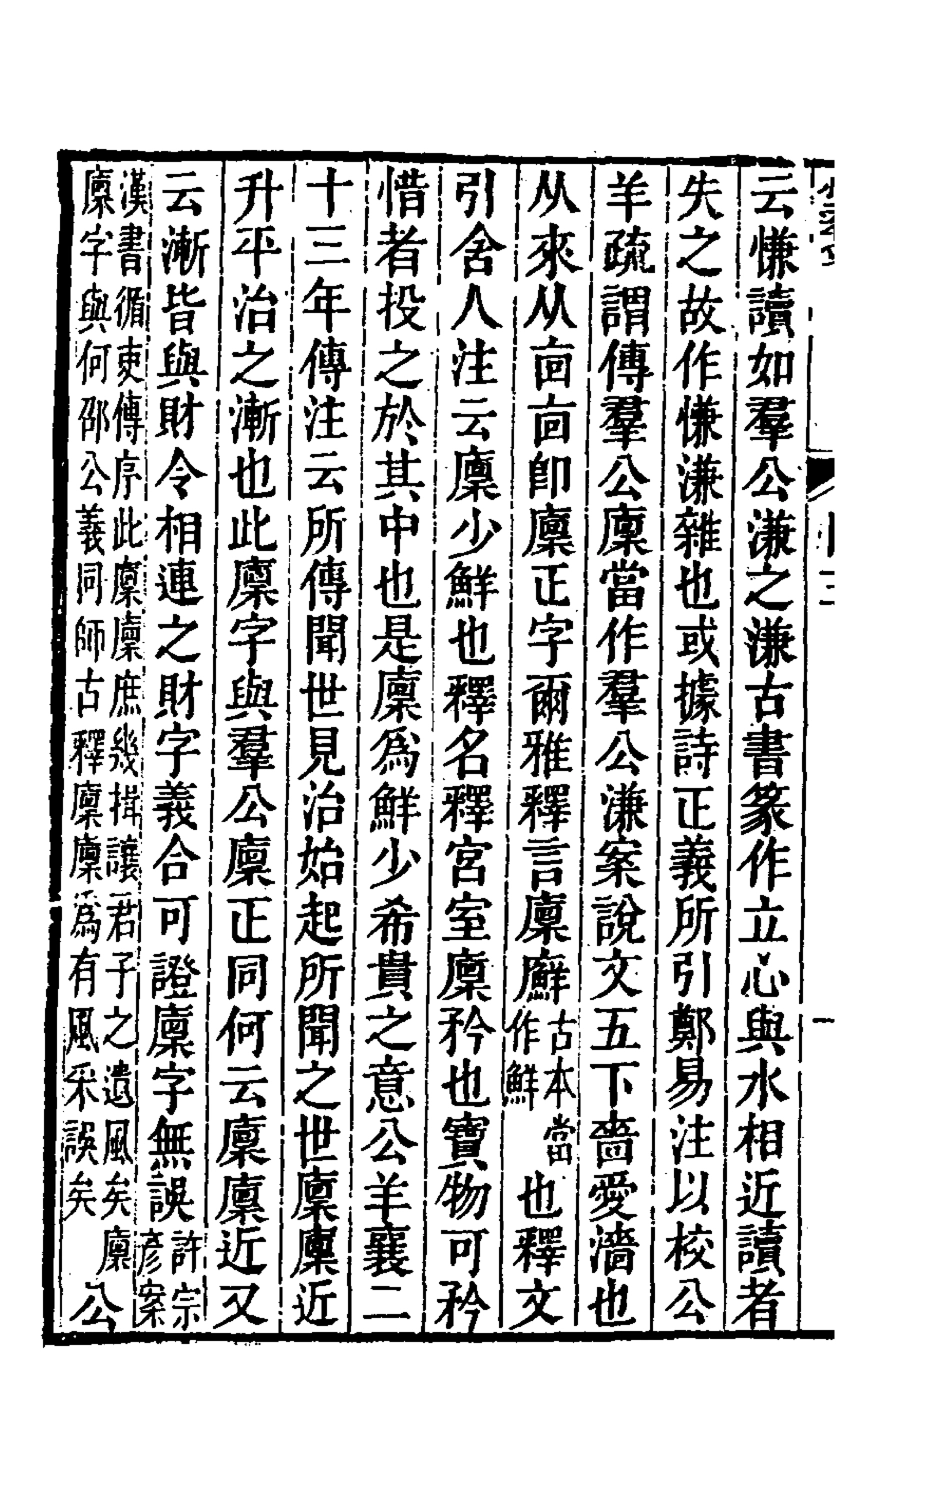 云慊讀如羣公溓之溓古書篆作立心與水相近讀者
失之故作慊溓雜也或據詩正義所引鄭易注以校公
羊疏謂傳羣公廩當作羣公溓案說文五下嗇愛濇也
从來从㐭㐭卽廩正字爾雅釋言廩廯古本作鮮當也釋文
引舍人注云廩少鮮也釋名釋宮室廩矜也寶物可矜
惜者投之於其中也是廩爲鮮少希貴之意公羊襄二
十三年傳注云所傳聞世見治始起所聞之世廩廩近
升平治之漸也此廩字與羣公廩正同何云廩廩近又
云漸皆與財令相連之財字義合可證廩字無誤許宗彥案
漢書循吏傳序此廩廩庶幾揖讓君子之遺風矣廩
廩字與何邵公義同師古釋廩廩爲有風采誤矣公